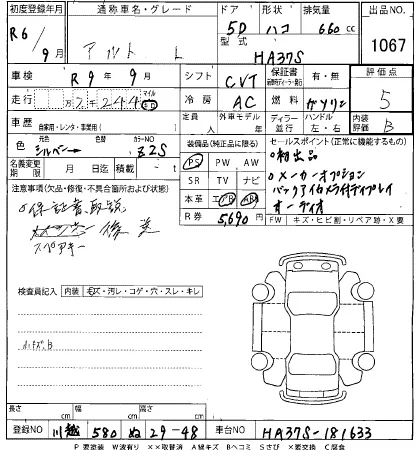 初度登録年月 通称車名・グレード ドア 形状 排気量 出品NO
R6/9月 アルト L 5D ハコ 660cc 1067
型式 HA37S
車検 R9年9月 シフト CVT 保証書 有・無 評価点
走行 万7千244 マイル km 冷房 AC 燃料 ガソリン 5
車歴 自家用・レンタ・事業用( ) 定員 人 外車モデル 年 ディーラー 並行 ハンドル 左・右 内装評価 B
色 シルバー 色替 カラーNO Z2S 装備品(純正品に限る) セールスポイント(正常に機能するもの)
名義変更期限 月 日 積載 PS PW AW
注意事項(欠品・修復・不具合箇所および状態) SR TV ナビ
本革 エアB ABS
R券 5,690
○初出品
○メーカーオプション
バックアイカメラ付ディプレイ
オーディオ
○保証書、取説 後送
スペアキー
FW キズ・ヒビ割・リペア跡・X要
検査員記入 内装 キズ・汚レ・コゲ・穴・スレ・キレ
小キズB
長さ cm 幅 cm 高さ cm
登録NO 川越 580 ぬ 29-48 車台NO HA37S-181633
P要塗装 W波有り ××取替済 A線キズ Bヘコミ Sさび ×要交換 C腐食